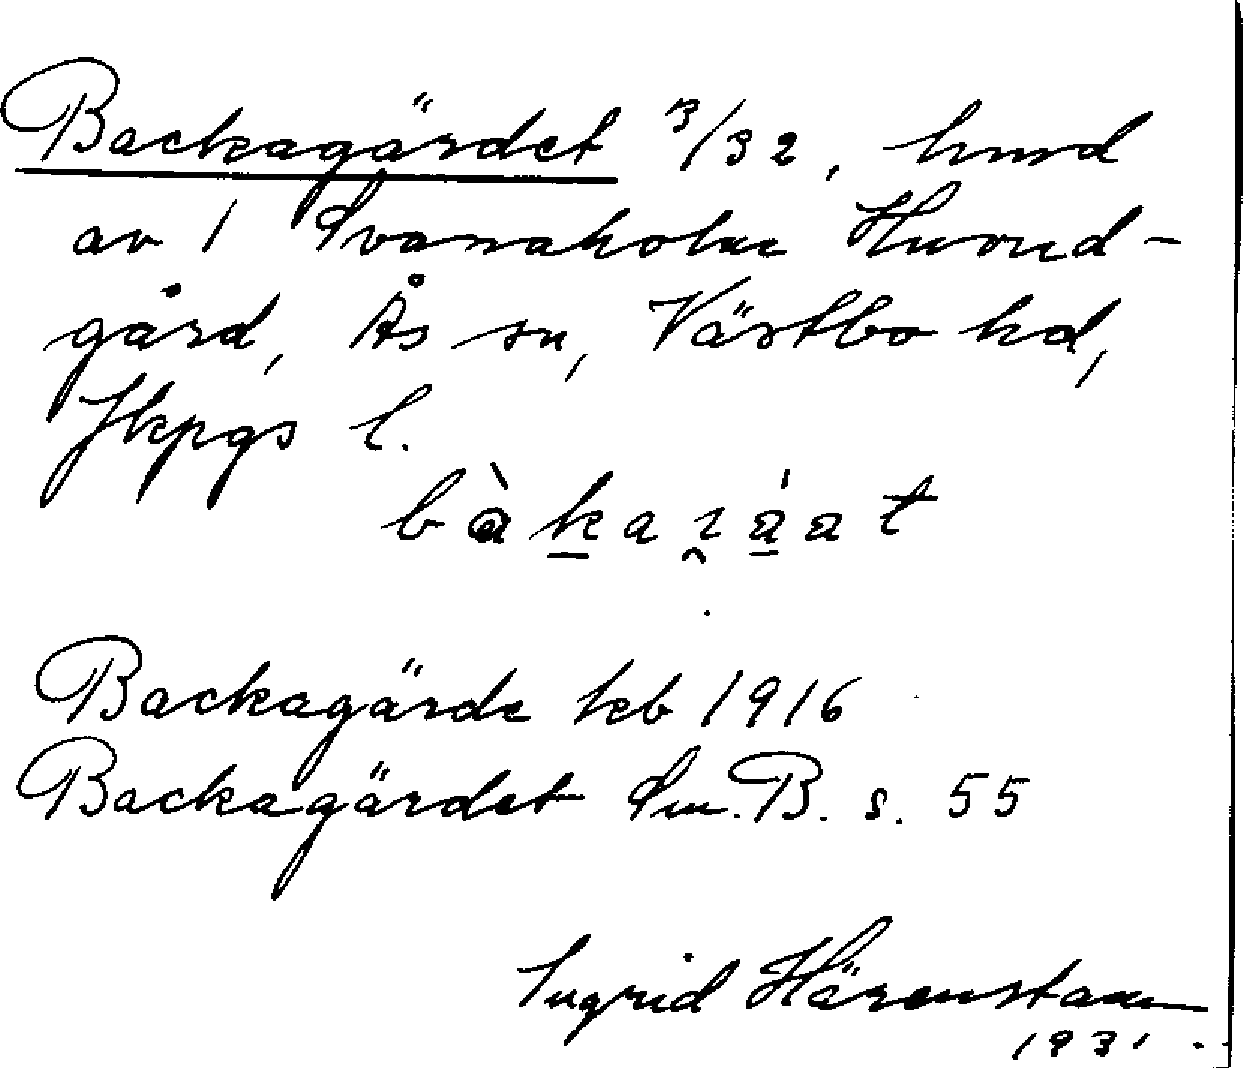 Backagärdet 3/32, hmd
av 1 Svanaholm Huvud-
gård, Ås sn, Västbo hd,
Jkpgs l.
Backagärde kb 1916
Backagärdet Sm. B. s. 55
Ingrid Härenstam
1931